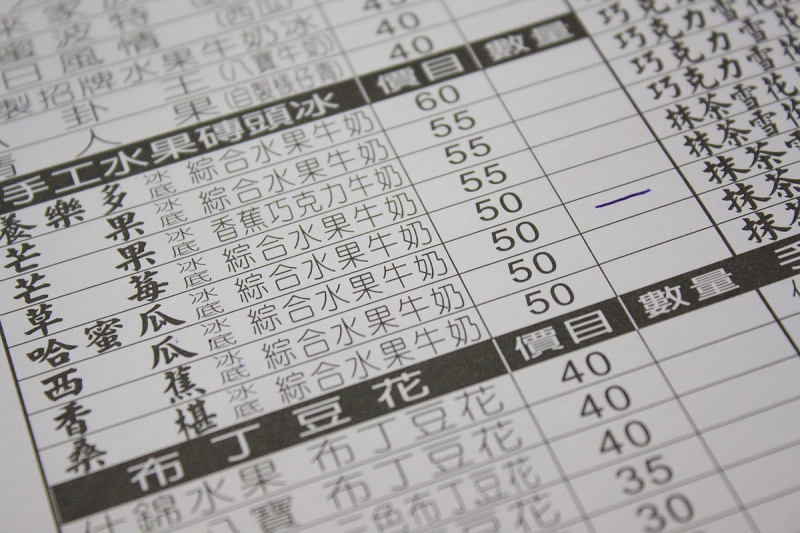 (西瓜)
波特
40
日風情 水果牛奶冰 40
製招牌
卦 王 (八寶牛奶)
人 果 (自製樣仔青)
手工水果磚頭冰 價目 數量
養樂多 冰底 綜合水果牛奶 60
芒果 冰底 綜合水果牛奶 55
芒果 冰底 香蕉巧克力牛奶 55
草莓 冰底 綜合水果牛奶 55
哈蜜瓜 冰底 綜合水果牛奶 50
西瓜 冰底 綜合水果牛奶 50
香蕉 冰底 綜合水果牛奶 50
桑椹 冰底 綜合水果牛奶 50
布丁豆花 價目 數量
什錦水果 布丁豆花 40
八寶 布丁豆花 40
三色布丁豆花 40
35
30
巧克力雪花
巧克力雪花
巧克力雪花
抹茶雪花
抹茶雪花
抹茶雪
抹茶雪
抹茶
手